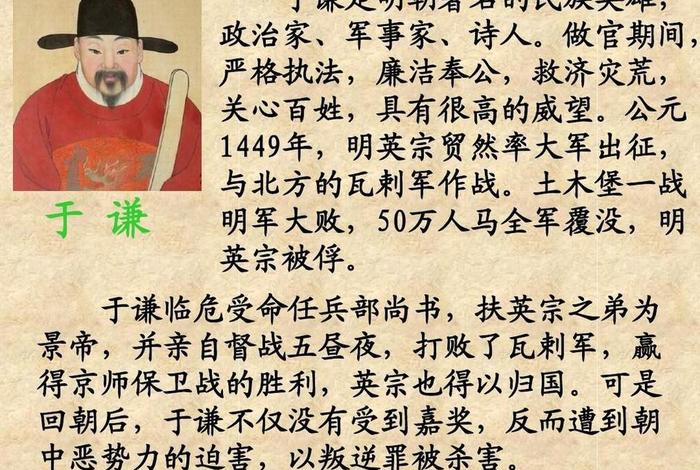 于谦是明朝著名的民族英雄，
政治家、军事家、诗人。做官期间，
严格执法，廉洁奉公，救济灾荒，
关心百姓，具有很高的威望。公元
1449年，明英宗贸然率大军出征，
与北方的瓦剌军作战。土木堡一战
明军大败，50万人马全军覆没，明
英宗被俘。
于 谦
于谦临危受命任兵部尚书，扶英宗之弟为
景帝，并亲自督战五昼夜，打败了瓦剌军，赢
得京师保卫战的胜利，英宗也得以归国。可是
回朝后，于谦不仅没有受到嘉奖，反而遭到朝
中恶势力的迫害，以叛逆罪被杀害。